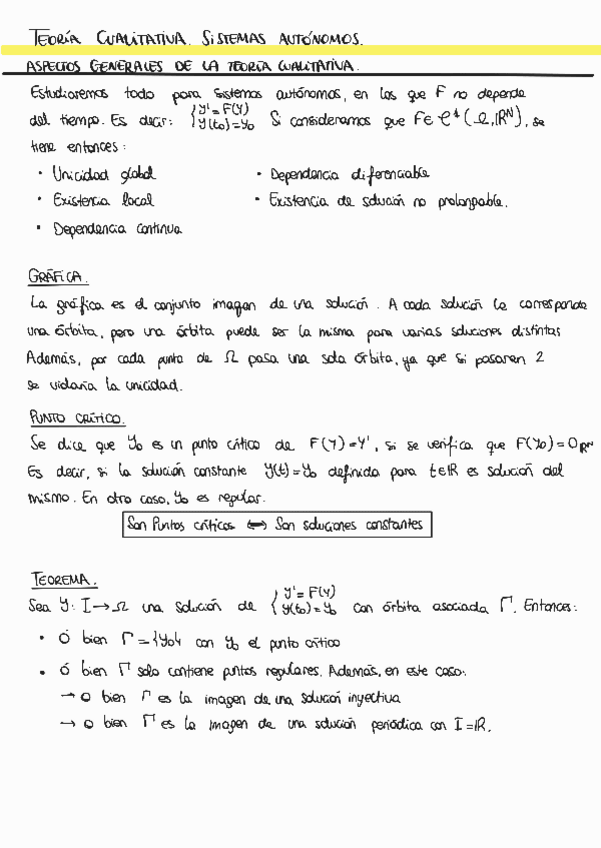 TEORÍA CUALITATIVA. SISTEMAS AUTÓNOMOS.
ASPECTOS GENERALES DE LA TEORÍA CUALITATIVA.
Estudiaremos todo para sistemas autónomos, en los que F no depende
del tiempo. Es decir: { Y' = F(Y) Y(t₀) = Y₀ Si consideramos que F ∈ C¹(Ω, ℝᴺ), se
tiene entonces:
· Unicidad global · Dependencia diferenciable
· Existencia local · Existencia de solución no prolongable.
· Dependencia continua
GRÁFICA.
La gráfica es el conjunto imagen de una solución. A cada solución le corresponde
una órbita, pero una órbita puede ser la misma para varias soluciones distintas
Además, por cada punto de Ω pasa una sola órbita, ya que si pasaran 2
se violaría la unicidad.
PUNTO CRÍTICO.
Se dice que Y₀ es un punto crítico de F(Y) = Y', si se verifica que F(Y₀) = 0ℝᴺ
Es decir, si la solución constante Y(t) = Y₀ definida para t∈ℝ es solución del
mismo. En otro caso, Y₀ es regular.
Son Puntos críticos ⟺ Son soluciones constantes
TEOREMA.
Sea Y: I → Ω una solución de { Y' = F(Y) Y(t₀) = Y₀ con órbita asociada Γ. Entonces:
· Ó bien Γ = {Y₀} con Y₀ el punto crítico
· Ó bien Γ solo contiene puntos regulares. Además, en este caso:
→ O bien Γ es la imagen de una solución inyectiva
→ O bien Γ es la imagen de una solución periódica con I = ℝ.